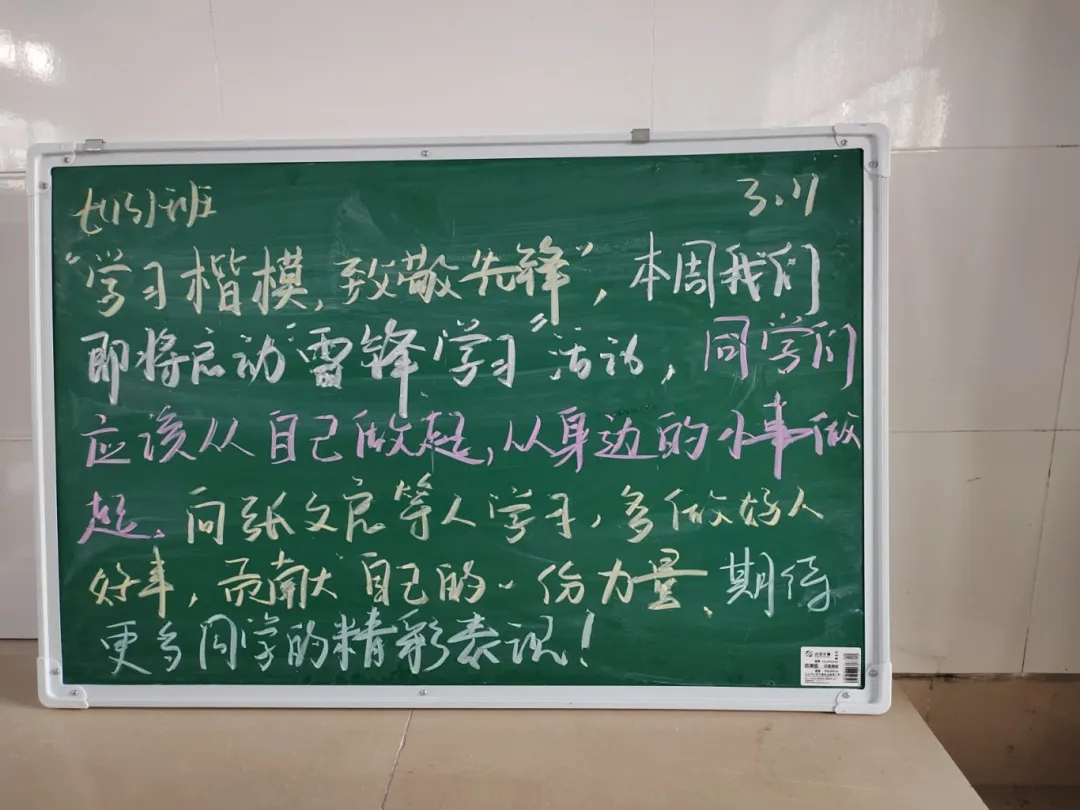 七(13)班 3.11
“学习楷模,致敬先锋”,本周我们
即将启动“雷锋学习”活动,同学们
应该从自己做起,从身边的小事做
起。向张文启等人学习,多做好人
好事,贡献自己的一份力量。期待
更多同学的精彩表现!